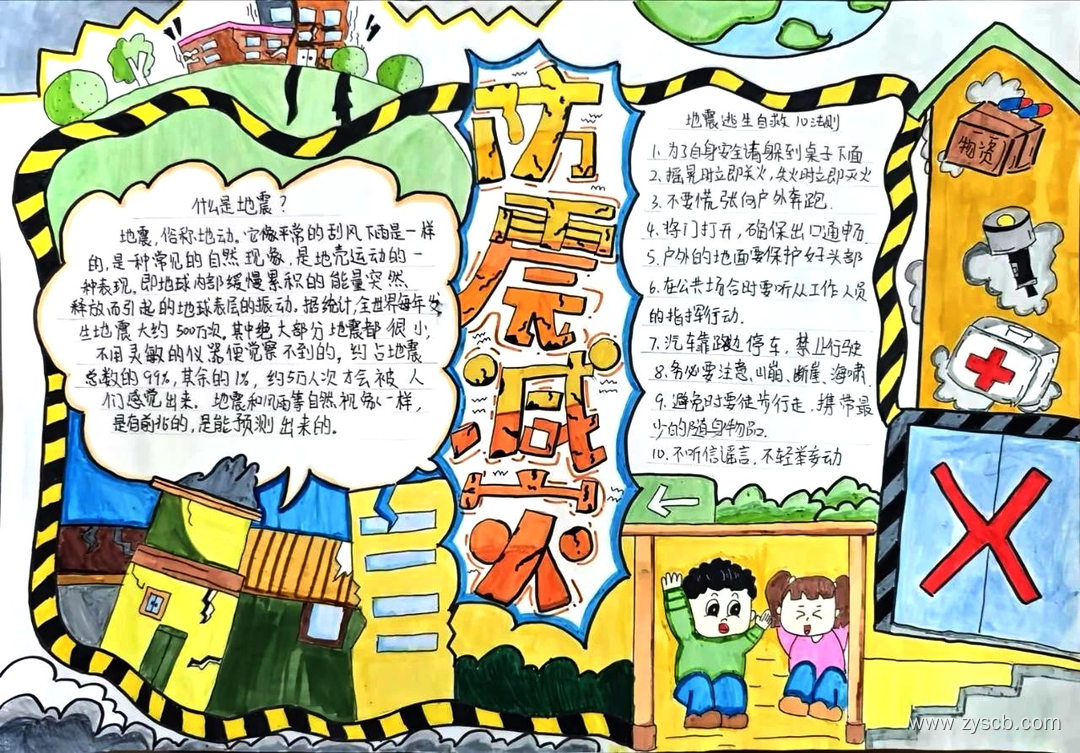 防震减灾
什么是地震？
地震，俗称地动。它像平常的刮风下雨是一样
的，是一种常见的自然现象，是地壳运动的一
种表现。即地球内部缓慢累积的能量突然
释放而引起的地球表层的振动。据统计，全世界每年发
生地震大约500万次。其中绝大部分地震都很小，
不用灵敏的仪器便觉察不到的，约占地震
总数的99%，其余的1%，约5万人次才会被人
们感觉出来。地震和风雨等自然现象一样，
是有前兆的，是能预测出来的。
地震逃生自救10法则
1. 为了自身安全请躲到桌子下面
2. 摇晃时立即关火，失火时立即灭火
3. 不要慌张向户外奔跑.
4. 将门打开，确保出口通畅
5. 户外的地面要保护好头部
6. 在公共场合时要听从工作人员
的指挥行动.
7. 汽车靠路边停车，禁止行驶
8. 务必要注意、山崩、断崖、海啸.
9. 避免时要徒步行走，携带最
少的随身物品.
10. 不听信谣言，不轻举妄动
物资
www.zyscb.com